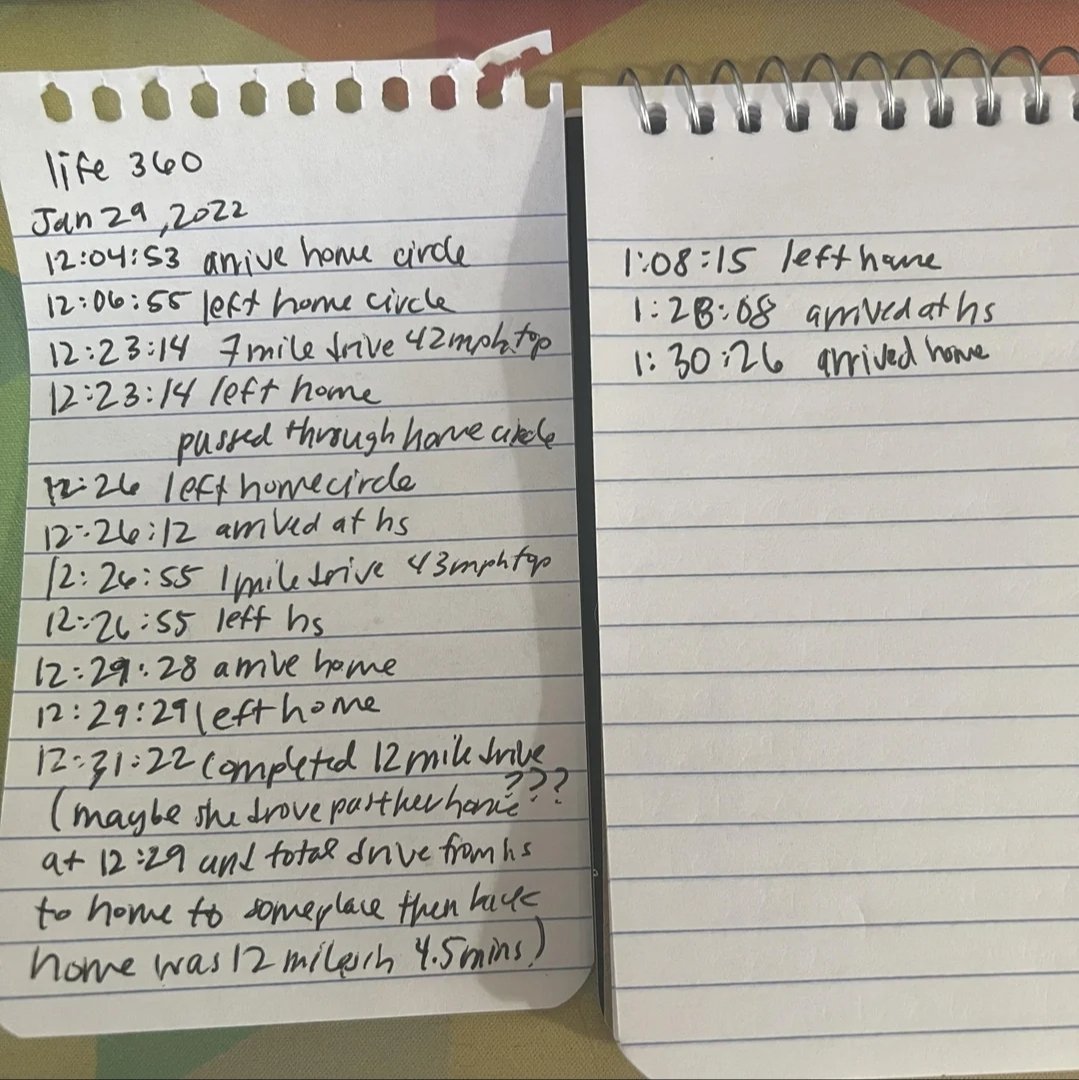 life 360
Jan 29, 2022
12:04:53 arrive home circle
12:06:55 left home circle
12:23:14 7 mile drive 42mph top
12:23:14 left home
passed through home circle
12:26 left home circle
12:26:12 arrived at hs
12:26:55 1 mile drive 43mph top
12:26:55 left hs
12:29:28 arrive home
12:29:29 left home
12:31:22 completed 12 mile drive
(maybe she drove past her home ???
at 12:29 and total drive from hs
to home to someplace then back
home was 12 miles in 4.5 mins)
1:08:15 left home
1:28:08 arrived at hs
1:30:26 arrived home